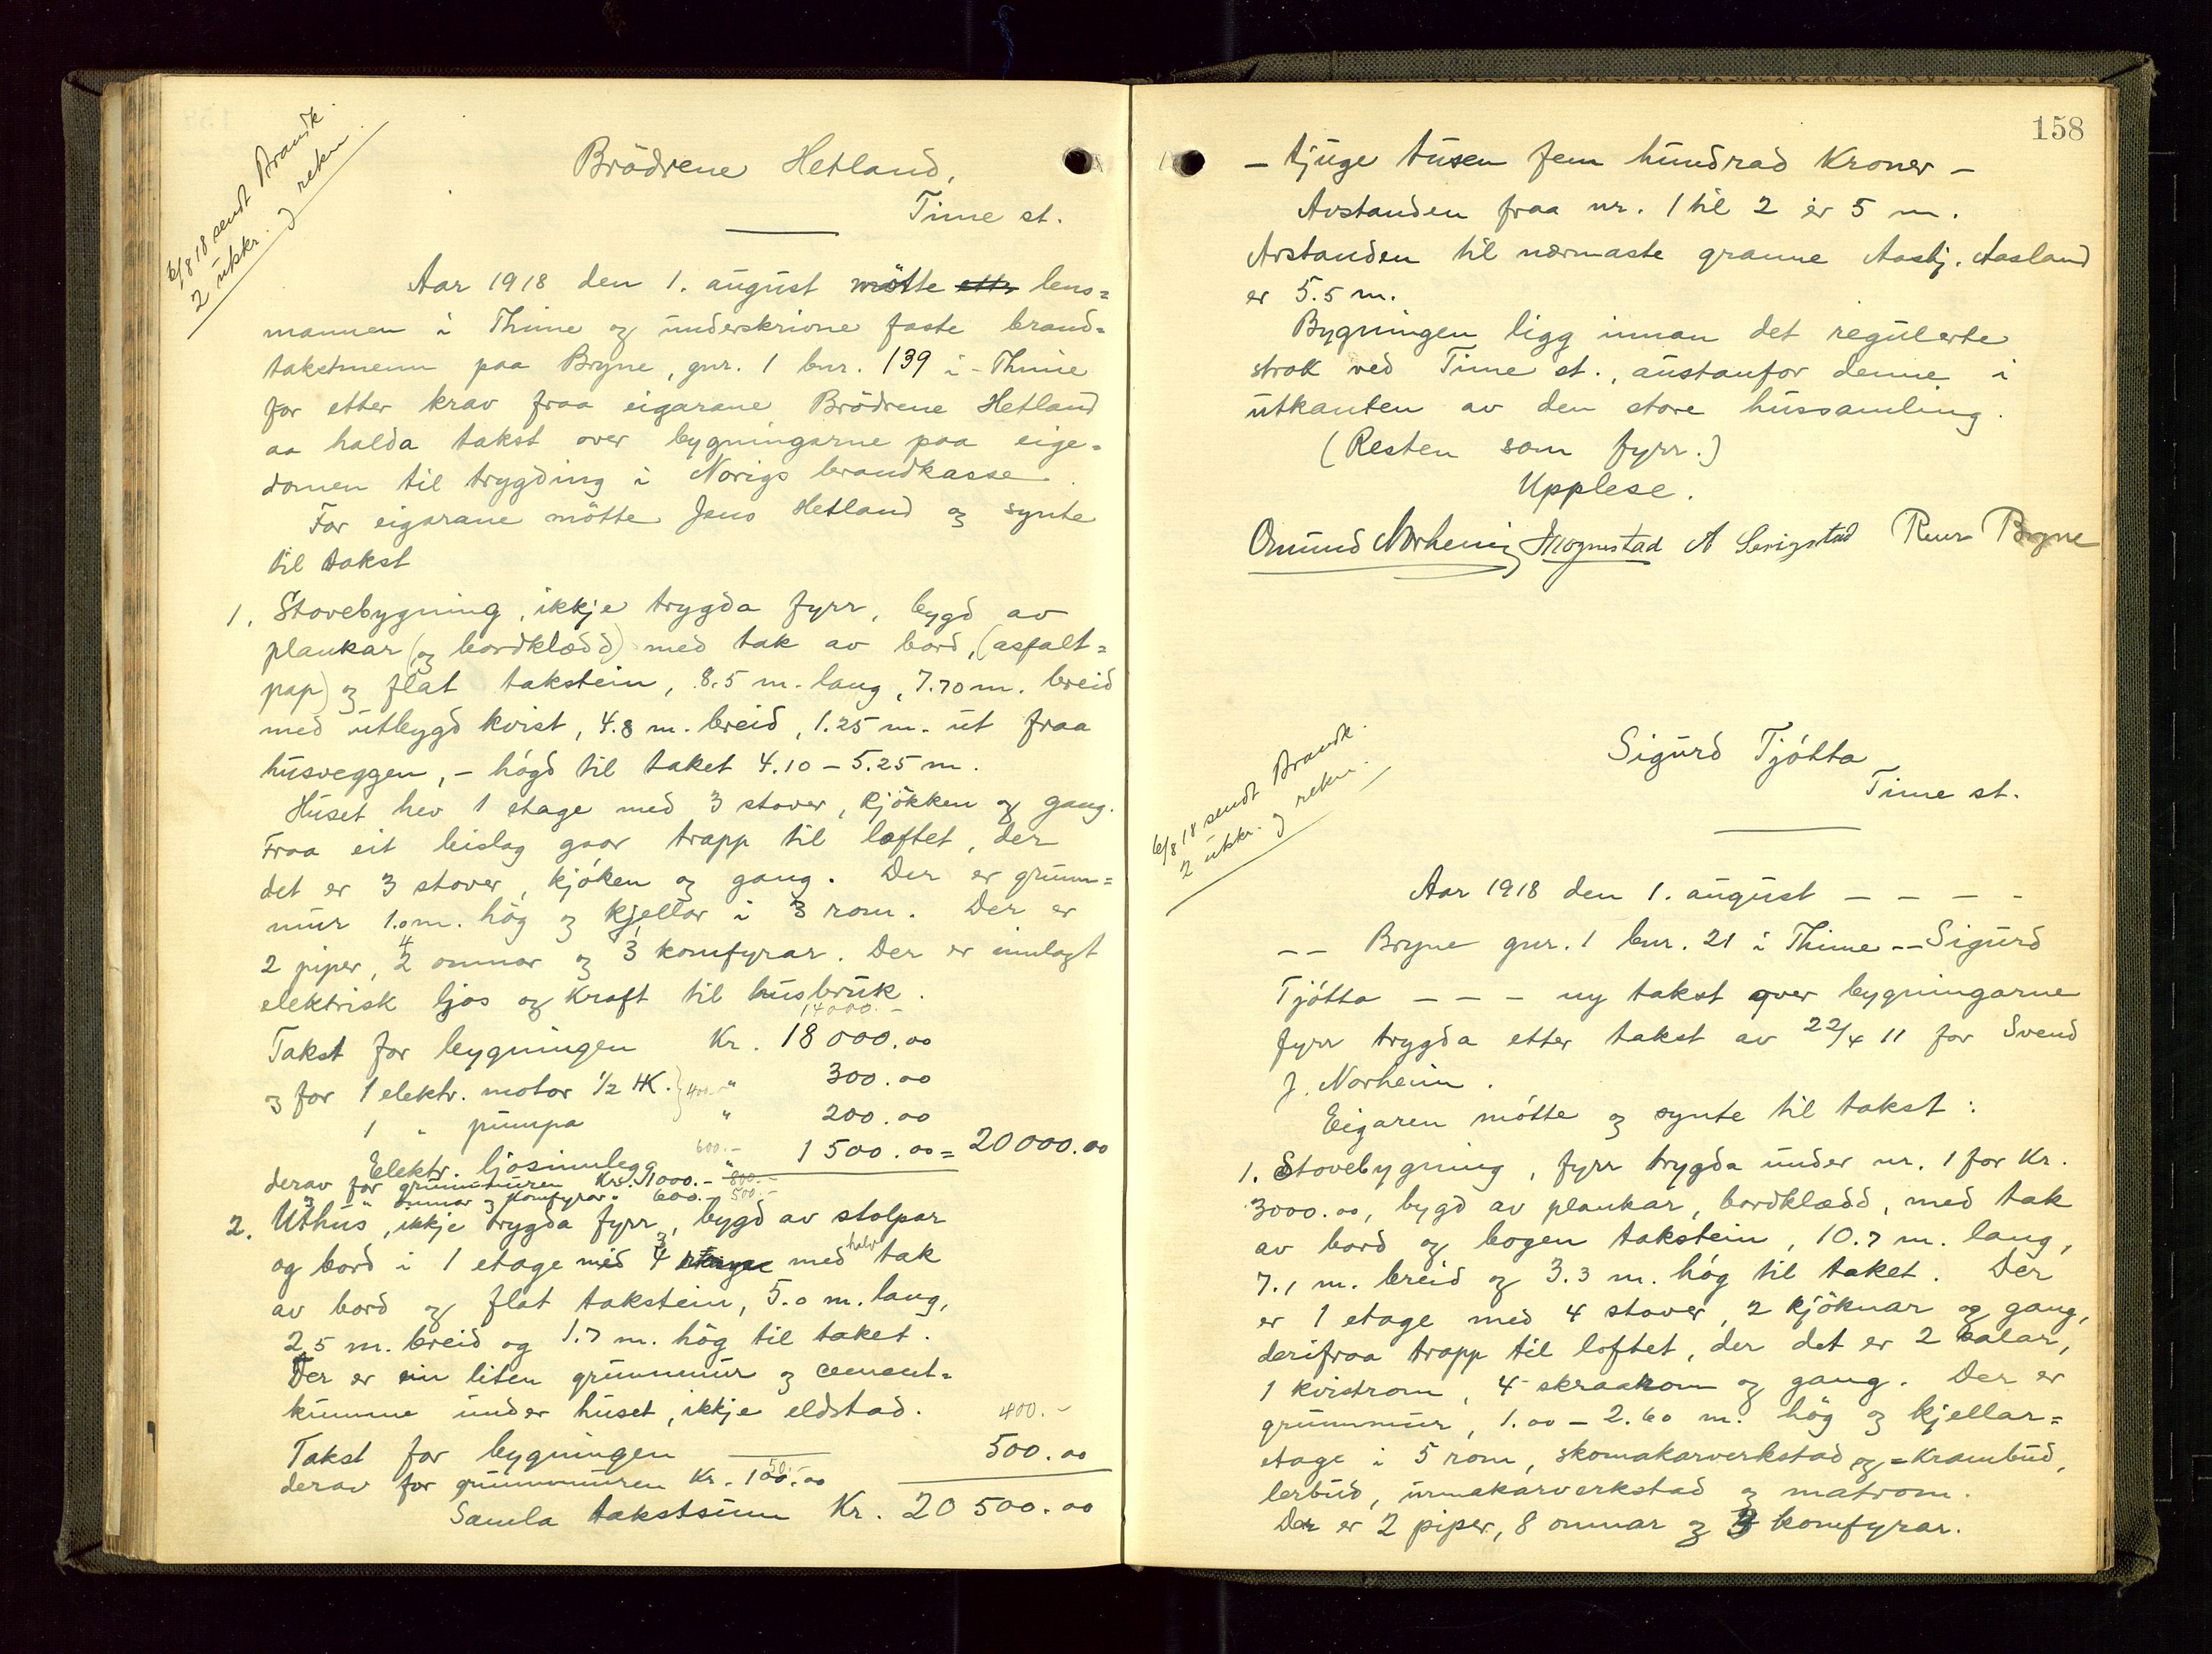 6/8 18 sendt Brandk.
2 utskr. og rekn.
Brödrene Hetland,
Time st.
Aar 1918 den 1. august mötte lens=
mannen i Thime og underskrivne faste brand=
takstmenn paa Bryne, gnr. 1 bnr. 139 i Thime
for etter krav fraa eigarane Brödrene Hetland
aa halda takst over bygningarne paa eige=
domen til trygding i Norigs brandkasse.
For eigarane mötte Jens Hetland og synte
til takst
1. Stovebygning, ikkje trygda fyrr, bygd av
plankar (og bordklædd) med tak av bord, (asfalt=
pap) og flat takstein, 8.5 m. lang, 7.70 m. breid
med utbygd kvist, 4.8 m. breid, 1.25 m. ut fraa
husveggen, - högd til taket 4.10 - 5.25 m.
Huset hev 1 etage med 3 stover, kjökken og gang.
Fraa eit bislag gaar trapp til loftet, der
det er 3 stover, kjöken og gang. Der er grunn=
mur 1.0 m. hög og kjellar i 3 rom. Der er
4
2 piper, 2 omnar og 3 komfyrar. Der er innlagt
elektrisk ljos og kraft til husbruk.
14000.-
Takst for bygningen Kr. 18000.00
og for 1 elektr. motor 1/2 HK. } 400.- " 300.00
1 " pumpa " 200.00
Elektr. ljosinnlegg 600.- " 1500.00 = 20000.00
derav for grunnmuren Kr. 1000.- 800.-
" " omnar og komfyrar " 600.- 500.-
2. Uthus, ikkje trygda fyrr, bygd av stolpar
og bord i 1 etage med 4 med halv tak
av bord og flat takstein, 5.0 m. lang,
2.5 m. breid og 1.7 m. hög til taket.
Der er ein liten grunnmur og cement=
kumme under huset, ikkje eldstad.
400.-
Takst for bygningen 500.00
50.-
derav for grunnmuren Kr. 100.00
Samla takstsum Kr. 20500.00
158
- tjuge tusen fem hundrad Kroner -
Avstanden fraa nr. 1 til 2 er 5 m.
Avstanden til nærmaste granne Aasbj. Aasland
er 5.5 m.
Bygningen ligg innan det regulerte
strok ved Time st., austanfor denne i
utkanten av den store hussamling.
(Resten som fyrr.)
Upplese.
Omund Norheim Mognestad A Serigstad Reier Bryne
6/8 18 sendt Brandk.
2 utskr. og rekn.
Sigurd Tjötta
Time st.
Aar 1918 den 1. august - - - -
-- Bryne gnr. 1 bnr. 21 i Thime -- Sigurd
Tjötta - - - ny takst over bygningarne
fyrr trygda etter takst av 22/4 11 for Svend
J. Norheim.
Eigaren mötte og synte til takst:
1. Stovebygning, fyrr trygda under nr. 1 for Kr.
3000.00, bygd av plankar, bordklædd, med tak
av bord og bogen takstein, 10.7 m. lang,
7.1 m. breid og 3.3 m. hög til taket. Der
er 1 etage med 4 stover, 2 kjöknar og gang,
derifraa trapp til loftet, der det er 2 salar,
1 kvistrom, 4 skraarom og gang. Der er
grunnmur, 1.00 - 2.60 m. hög og kjellar=
etage i 5 rom, skomakarverkstad og = krambud,
lerbud, urmakarverkstad og matrom.
Der er 2 piper, 8 omnar og 3 komfyrar.